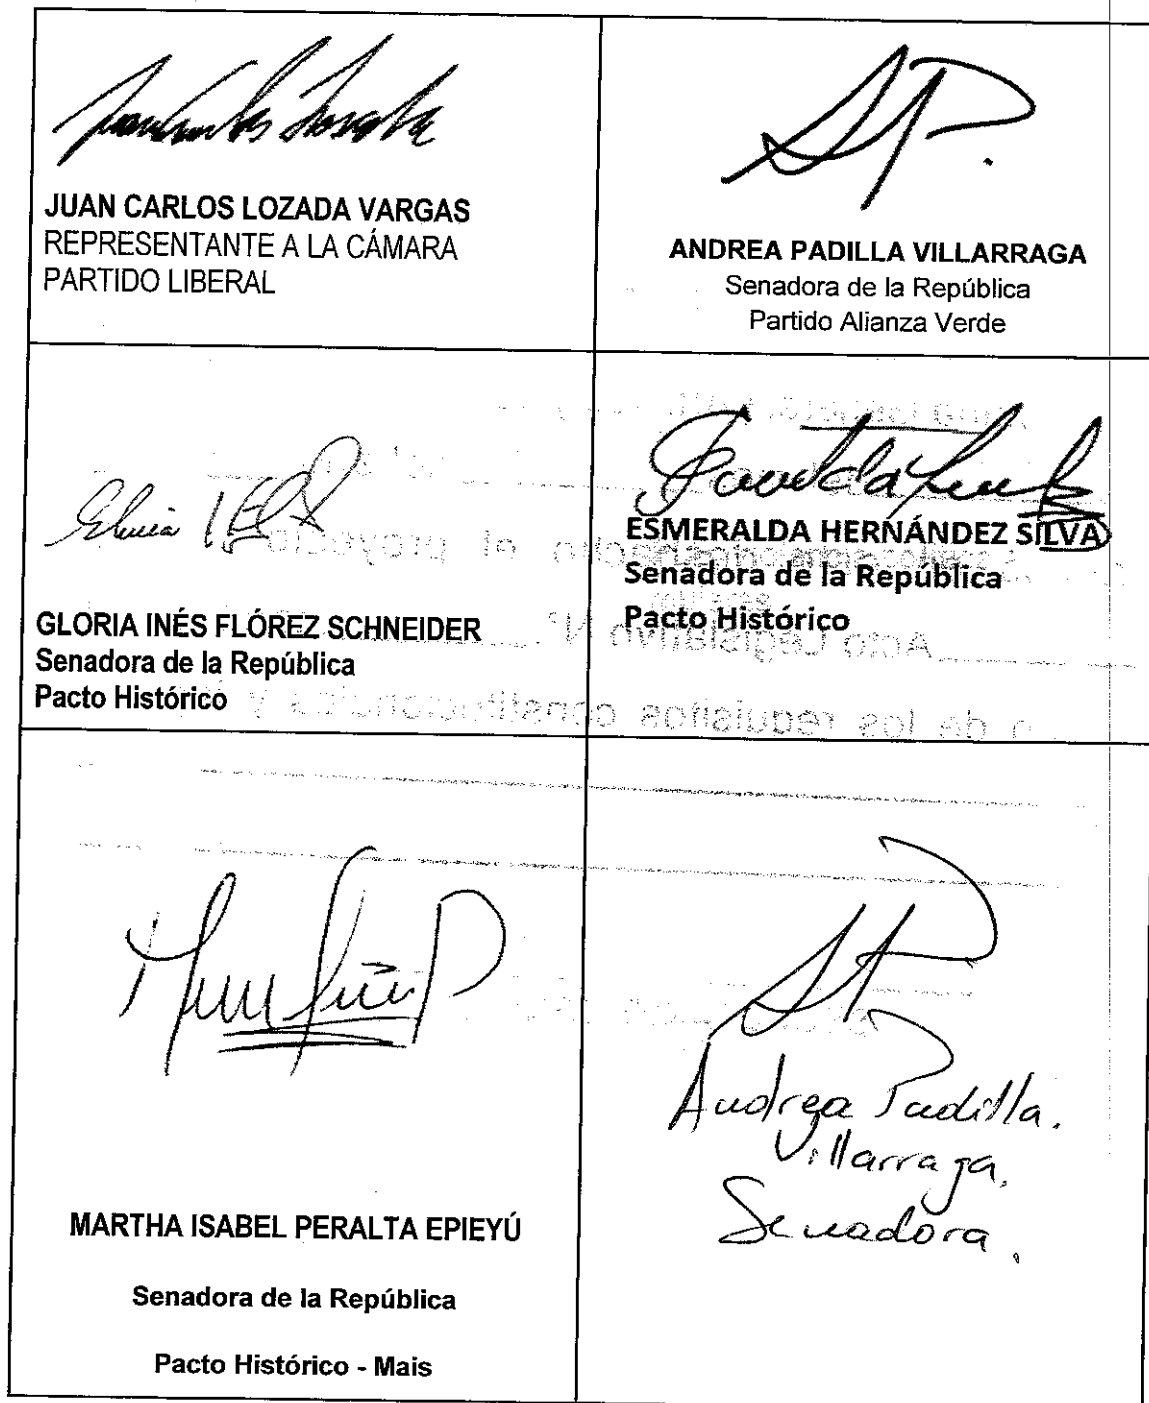 JUAN CARLOS LOZADA VARGAS
REPRESENTANTE A LA CÁMARA
PARTIDO LIBERAL
ANDREA PADILLA VILLARRAGA
Senadora de la República
Partido Alianza Verde
GLORIA INÉS FLÓREZ SCHNEIDER
Senadora de la República
Pacto Histórico
ESMERALDA HERNÁNDEZ SILVA
Senadora de la República
Pacto Histórico
MARTHA ISABEL PERALTA EPIEYÚ
Senadora de la República
Pacto Histórico - Mais
Andrea Padilla.
Villarraga.
Senadora.